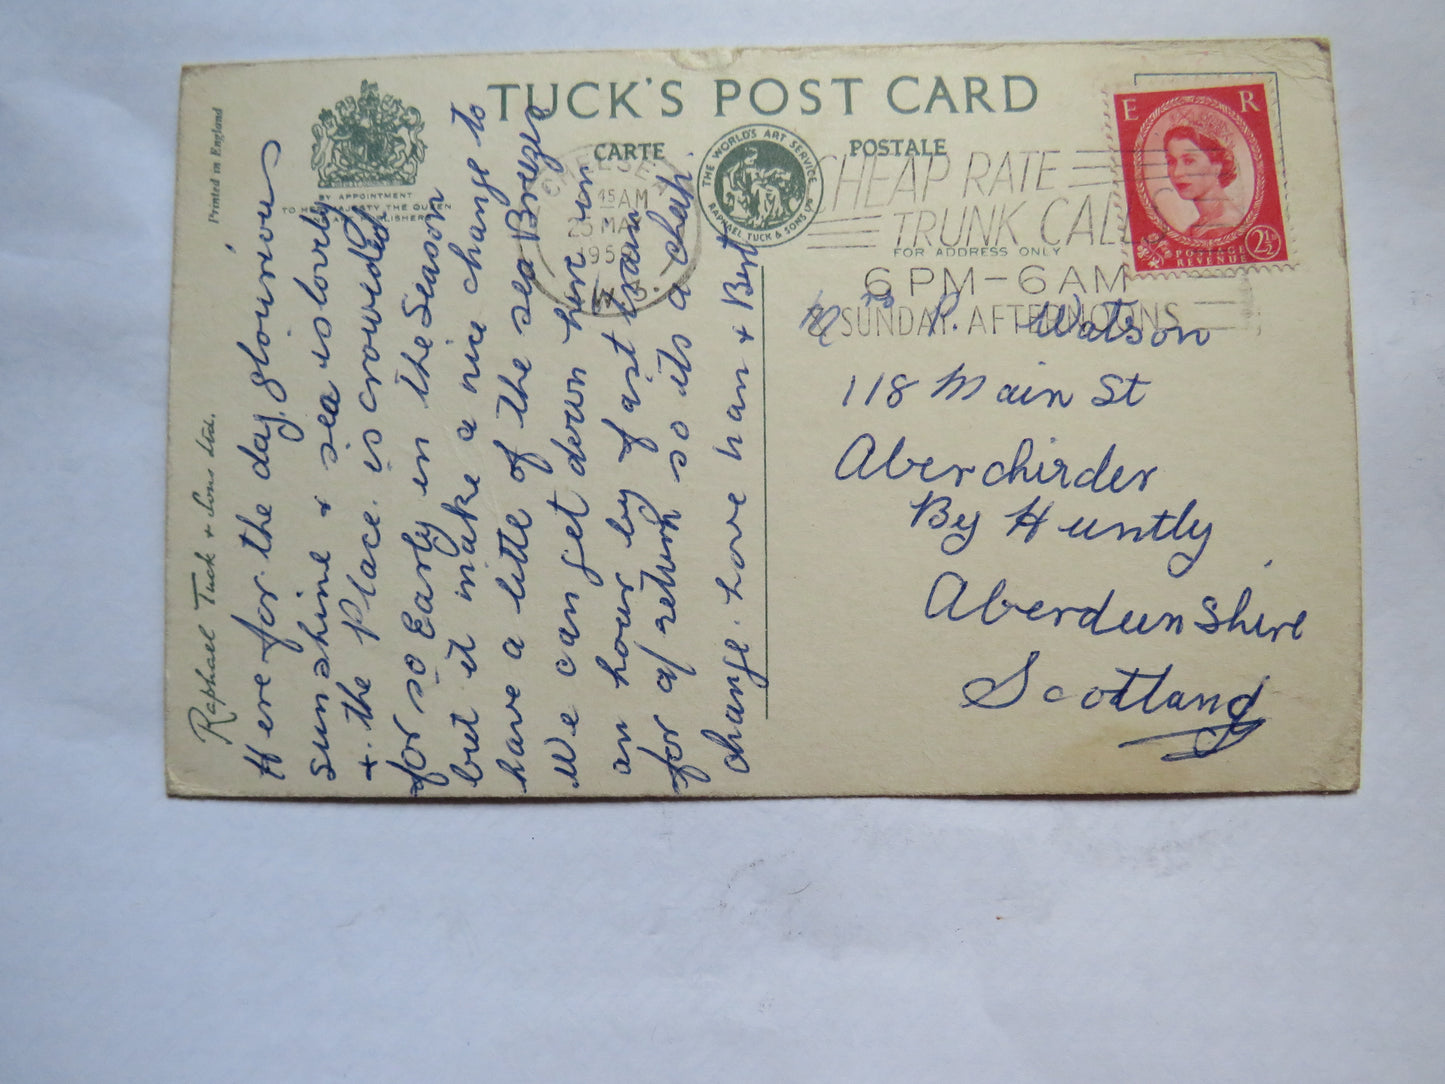 TUCK'S POST CARD
CARTE POSTALE
BY APPOINTMENT
TO HER MAJESTY THE QUEEN
THE WORLD'S ART SERVICE
RAPHAEL TUCK & SONS LTD
FOR ADDRESS ONLY
Printed in England
Raphael Tuck & Sons Ltd.
CHELSEA
45 AM
MA
CHEAP RATE
TRUNK CALLS
6 PM – 6 AM
& SUNDAY AFTERNOONS
E R
POSTAGE
REVENUE
2½
Here for the day, glourious
sunshine & sea is lovely
+ the Place is crowided
for so Early in the Season
but it make a nice change to
have a little of the sea Breeze
We can get down here in
an hour by fast train
for a/ return so its a cheap
change. Love Nan & Bert
Mrs P. Watson
118 Main St
Aberchirder
By Huntly
Aberdeenshire
Scotland